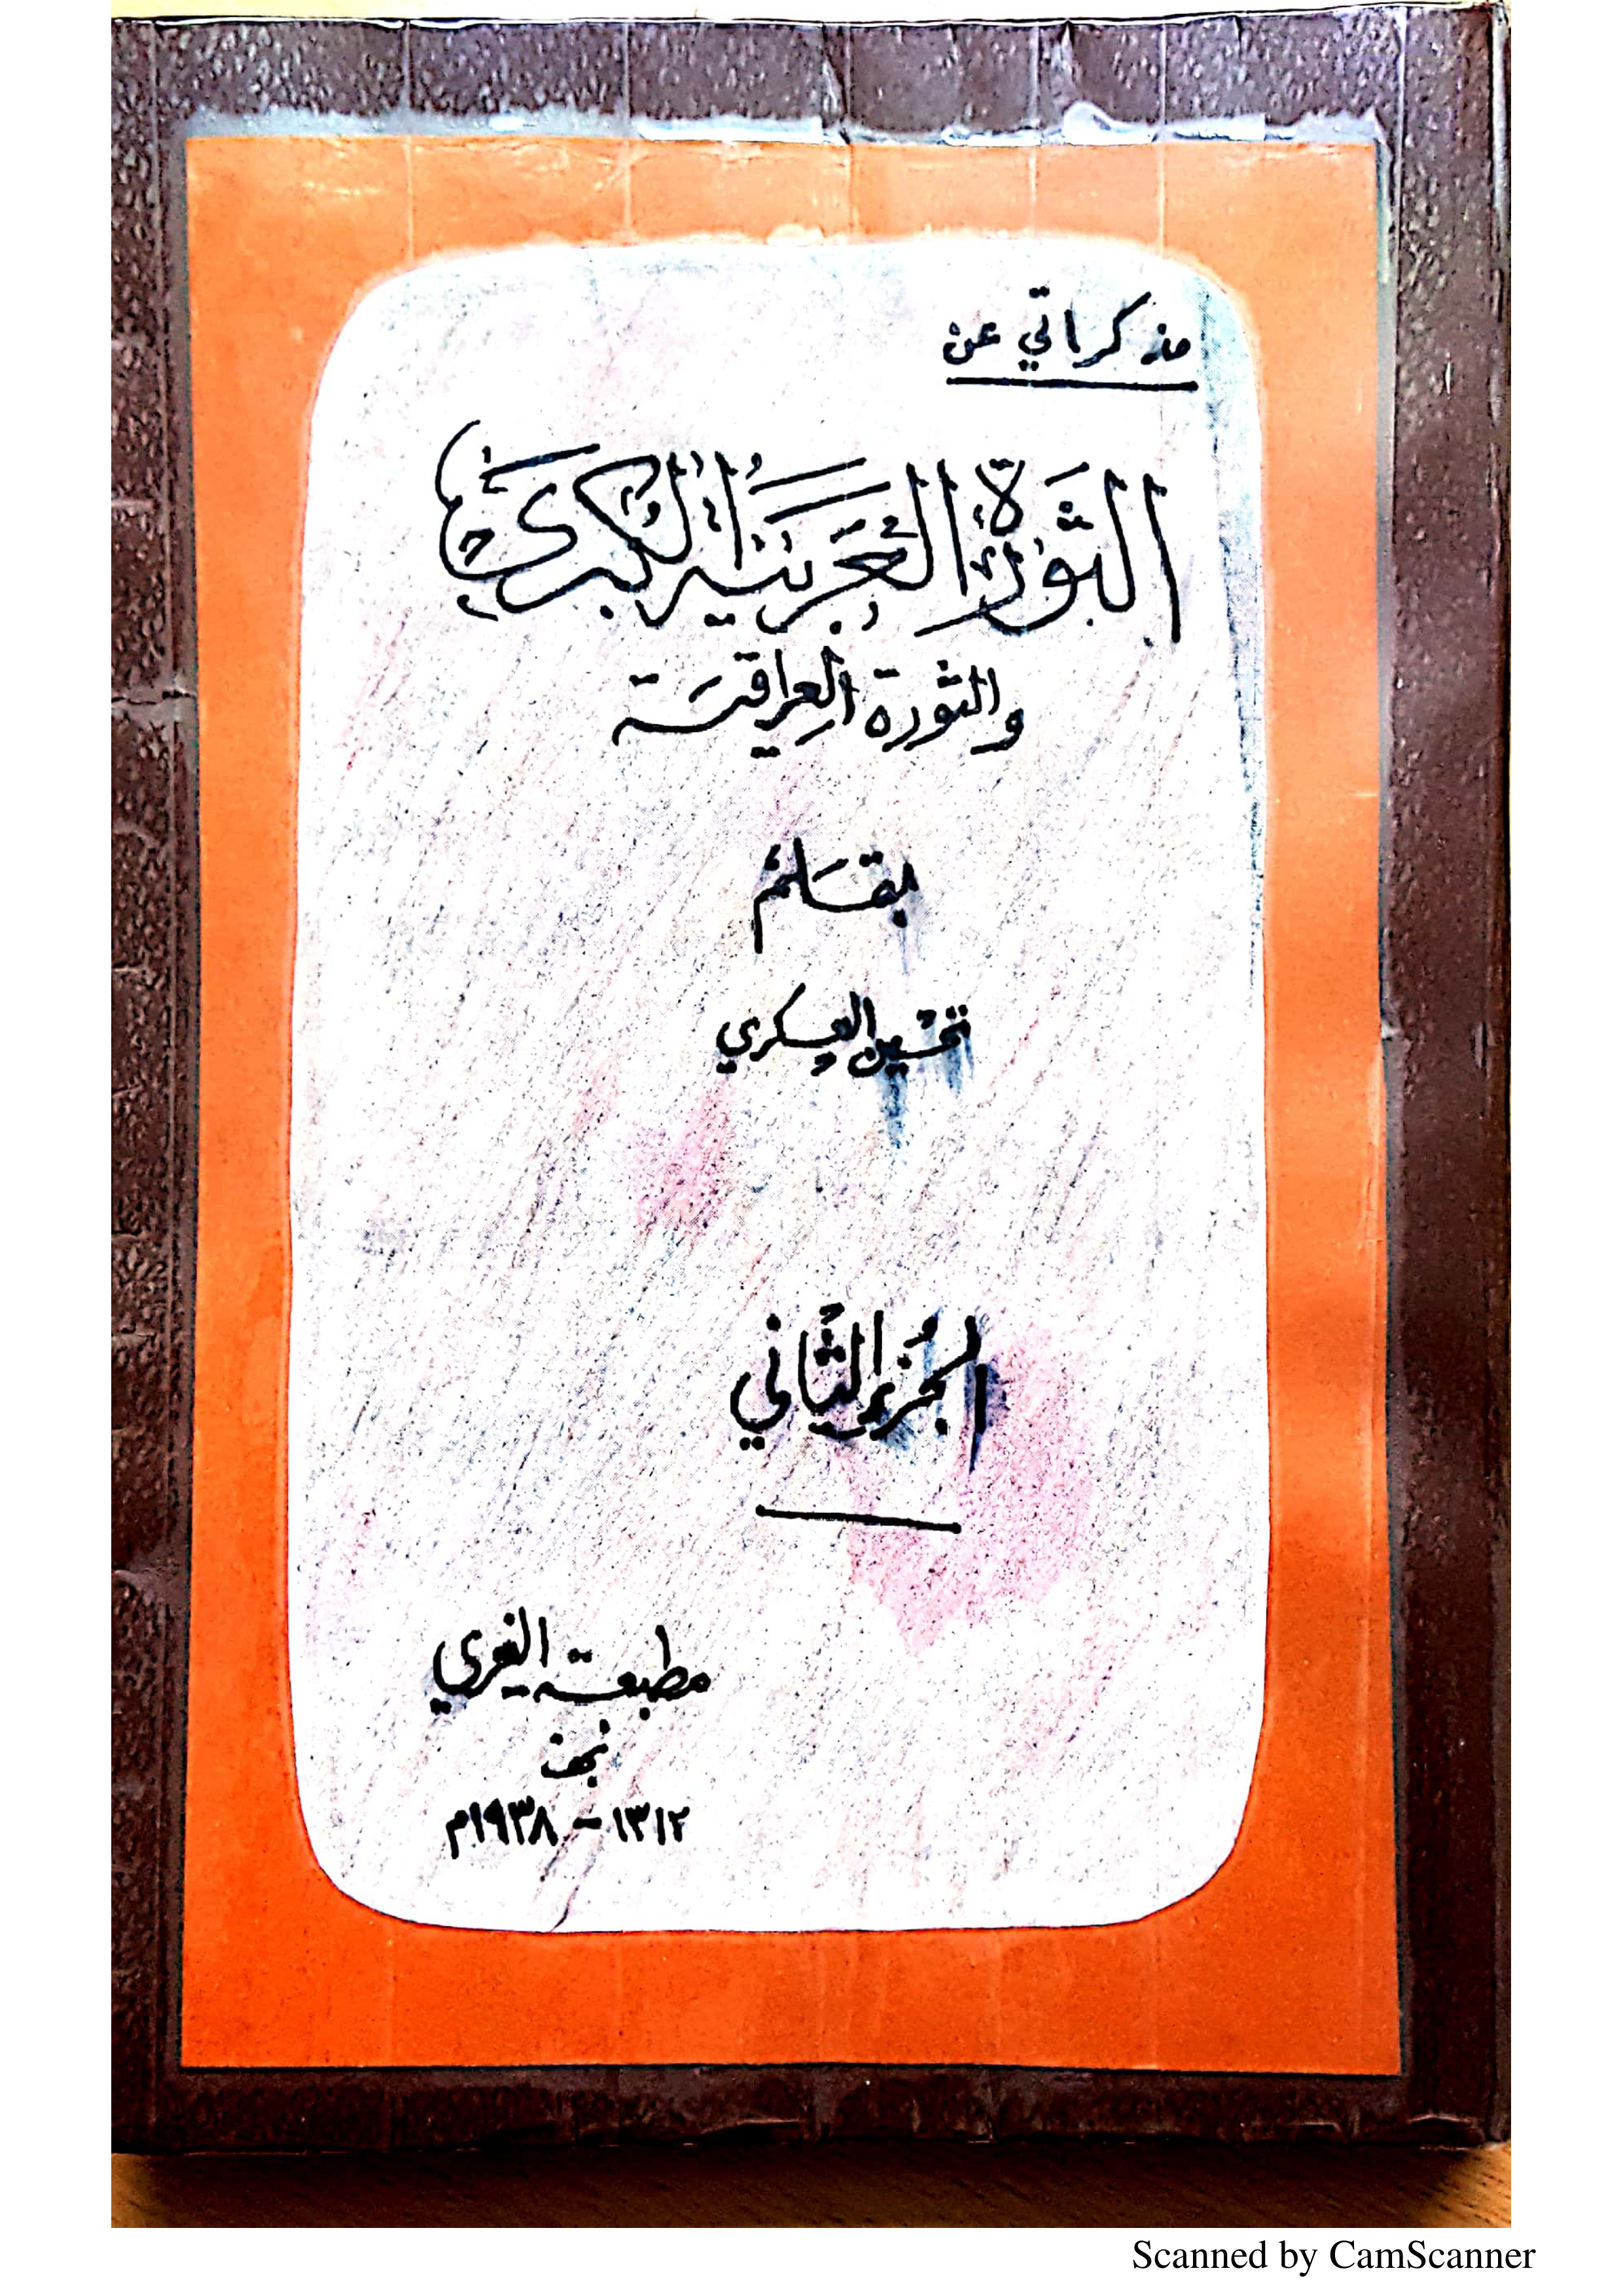 مذكراتي عن
الثورة العربية الكبرى
والثورة العراقية
بقلم
تحسين العسكري
الجزء الثاني
مطبعة الغري
نجف
١٣١٢ - ١٩٣٨م
Scanned by CamScanner